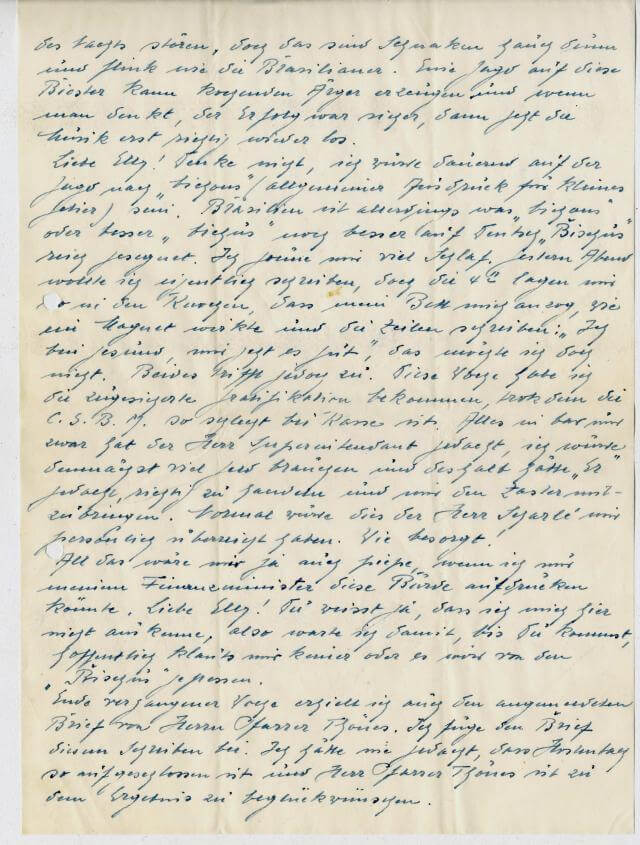 des nachts stören, doch das sind Schnaken hauchdünn
und flink wie die Brasilianer. Eine Jagd auf diese
Biester kann kochenden Ärger erzeugen und wenn
man denkt, der Erfolg war sicher, dann geht die
Musik erst richtig wieder los.
Liebe Elly! Denke nicht, ich würde dauernd auf der
Jagd nach "bichous" (allgemeiner Ausdruck für kleines
Getier) sein. Brasilien ist allerdings was "bichous"
oder besser "bichus" noch besser auf Deutsch "Bischus"
reich gesegnet. Ich gönne mir viel Schlaf. Gestern Abend
wollte ich eigentlich schreiben, doch die lagen mir
so in den Knochen, dass mein Bett mich anzog, wie
ein Magnet wirkte und die Zeilen schreiben: "Ich
bin gesund, mir geht es gut", das möchte ich doch
nicht. Beides trifft jedoch zu. Diese Woche habe ich
die zugesicherte Gratifikation bekommen, trotzdem die
C.S.B.M. so schlecht bei Kasse ist. Alles in bar und
zwar hat der Herr Superintendant gedacht, ich würde
demnächst viel Geld brauchen und deshalb hätte "Er"
gedacht, richtig zu handeln und mir den Zaster mit-
zubringen. Normal würde dies der Herr Scharlé mir
persönlich überreicht haben. Wie besorgt!
All das wäre mir ja auch piepe, wenn ich nur
meinem Finanzminister diese Bürde aufdrücken
könnte. Liebe Elly! Du weisst ja, dass ich mich hier
nicht auskenne, also warte ich damit, bis Du kommst,
hoffentlich klaut's mir keiner oder es wird von den
"Bischus" gefressen.
Ende vergangener Woche erhielt ich auch den angemeldeten
Brief von Herrn Pfarrer Thönes. Ich füge den Brief
diesem Schreiben bei. Ich hätte nie gedacht, dass
so aufgeschlossen ist und Herr Pfarrer Thönes ist zu
dem Ergebnis zu beglückwünschen.